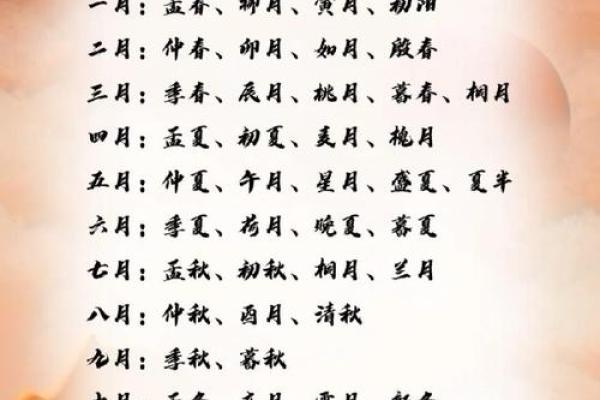 一月：孟春、柳月、寅月、初阳
二月：仲春、卯月、如月、殷春
三月：季春、辰月、桃月、暮春、桐月
四月：孟夏、初夏、麦月、槐月
五月：仲夏、午月、星月、盛夏、夏半
六月：季夏、荷月、晚夏、暮夏
七月：孟秋、初秋、桐月、兰月
八月：仲秋、酉月、清秋
九月：季秋、暮秋
十月：孟冬、亥月、霜月、初冬